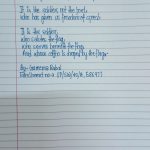 It is the soldier, not the poet,
Who has given us freedom of speech.
It is the soldier,
Who salutes the flag,
Who serves beneath the flag,
And whose coffin is draped by the flag.
By-
Enrollment no :-